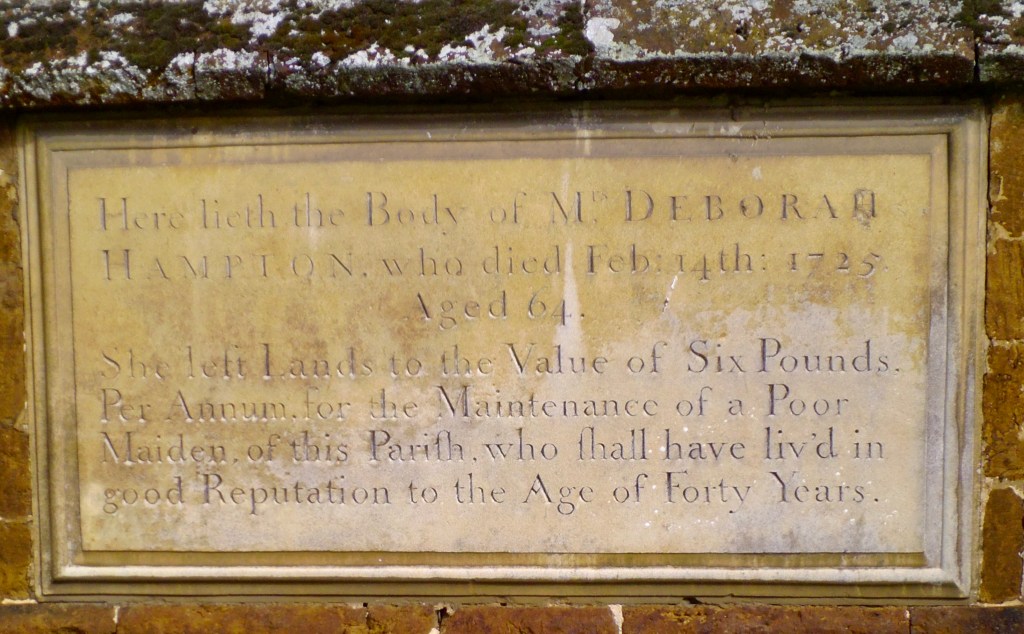 Here lieth the Body of Mrs DEBORAH
HAMPTON, who died Feb: 14th: 1725.
Aged 64.
She left Lands to the Value of Six Pounds.
Per Annum, for the Maintenance of a Poor
Maiden, of this Pariſh, who ſhall have liv'd in
good Reputation to the Age of Forty Years.